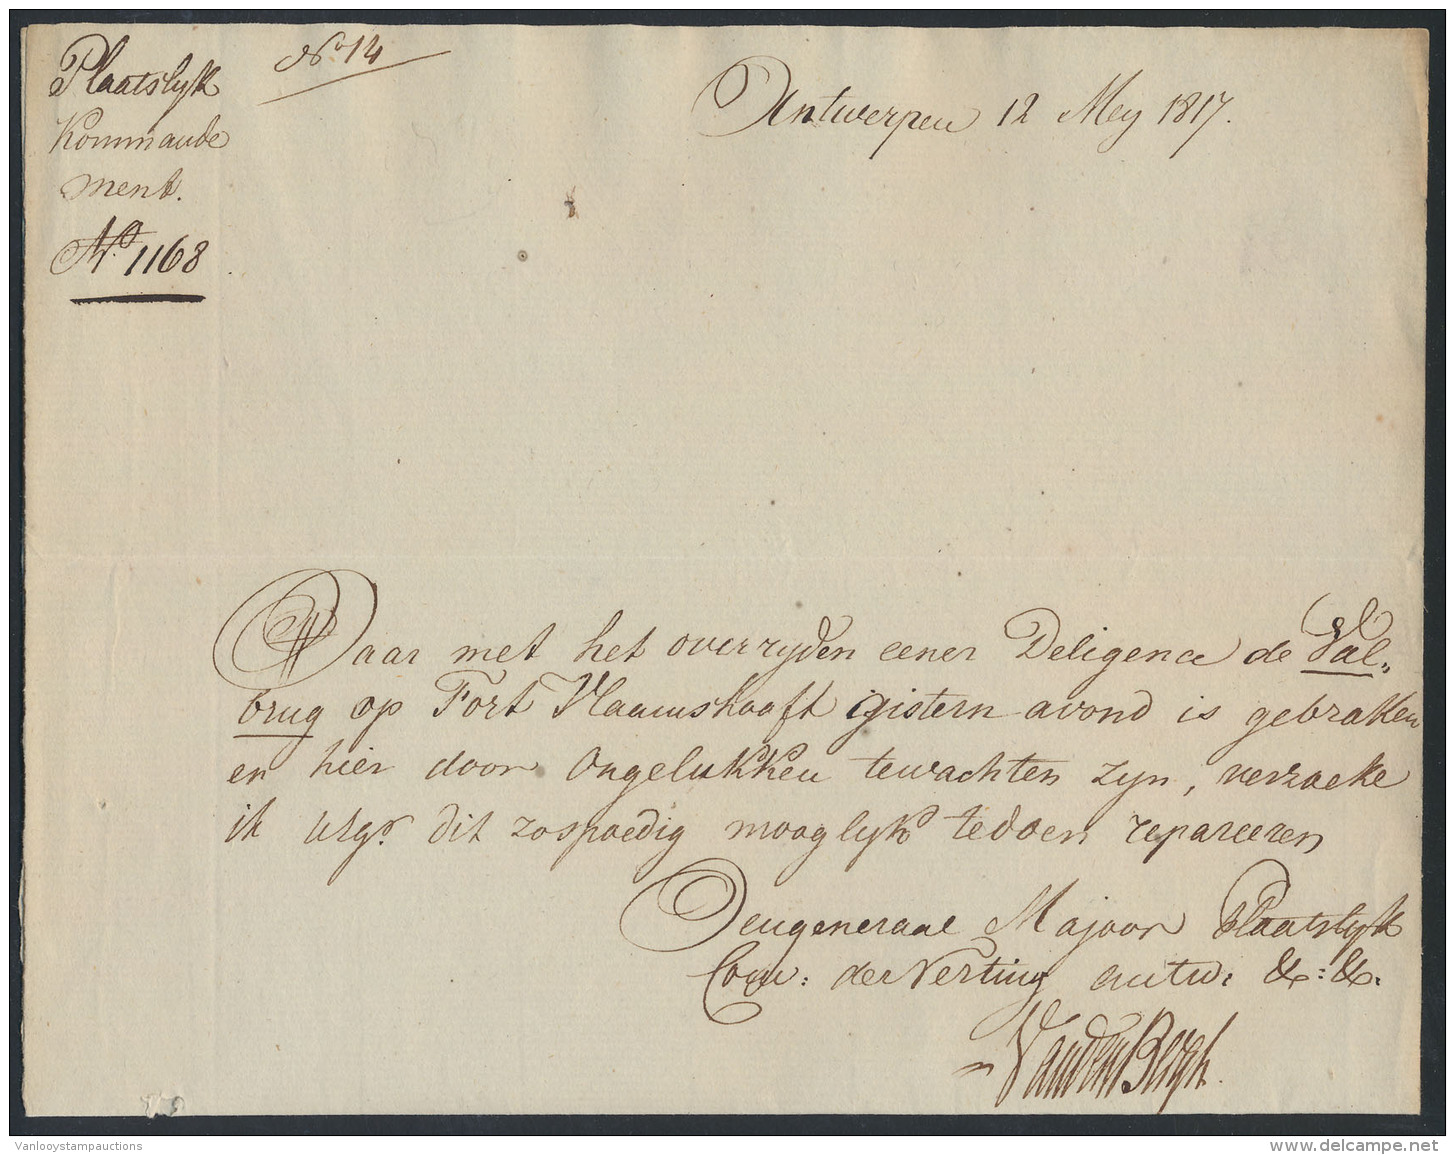 Plaatslyk
Kommande
ment.
No. 1168
No 14
Antwerpen 12 Mey 1817.
Daar met het overryden eener Deligence de Val„
brug op Fort Vlaamshooft gistern avond is gebraken
en hier door Ongelukken tewachten zyn, verzoeke
ik UEgr. dit zospoedig mooglyk tedoen repareeren
Den generaal Majoor Plaatslyk
Com: der Vesting antw: &:&.
Van den Bergh.
Vanlooystampauctions
www.delcampe.net